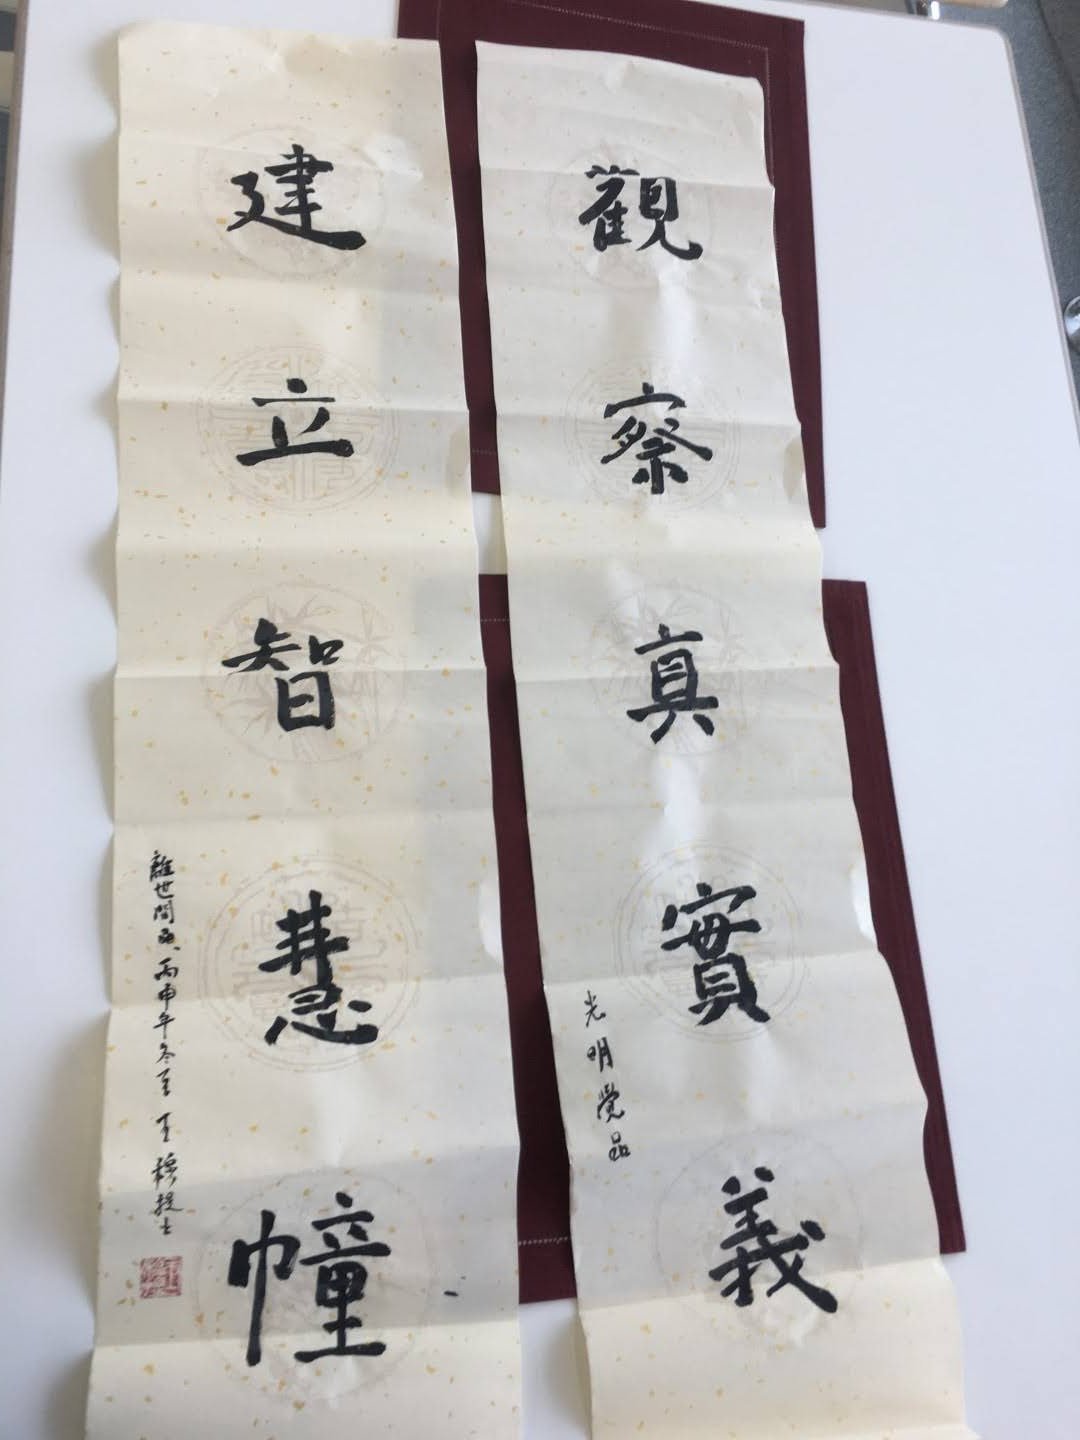 觀察真實義
光明覺品
建立智慧幢
離世間品、丙申年冬至 王穆提士